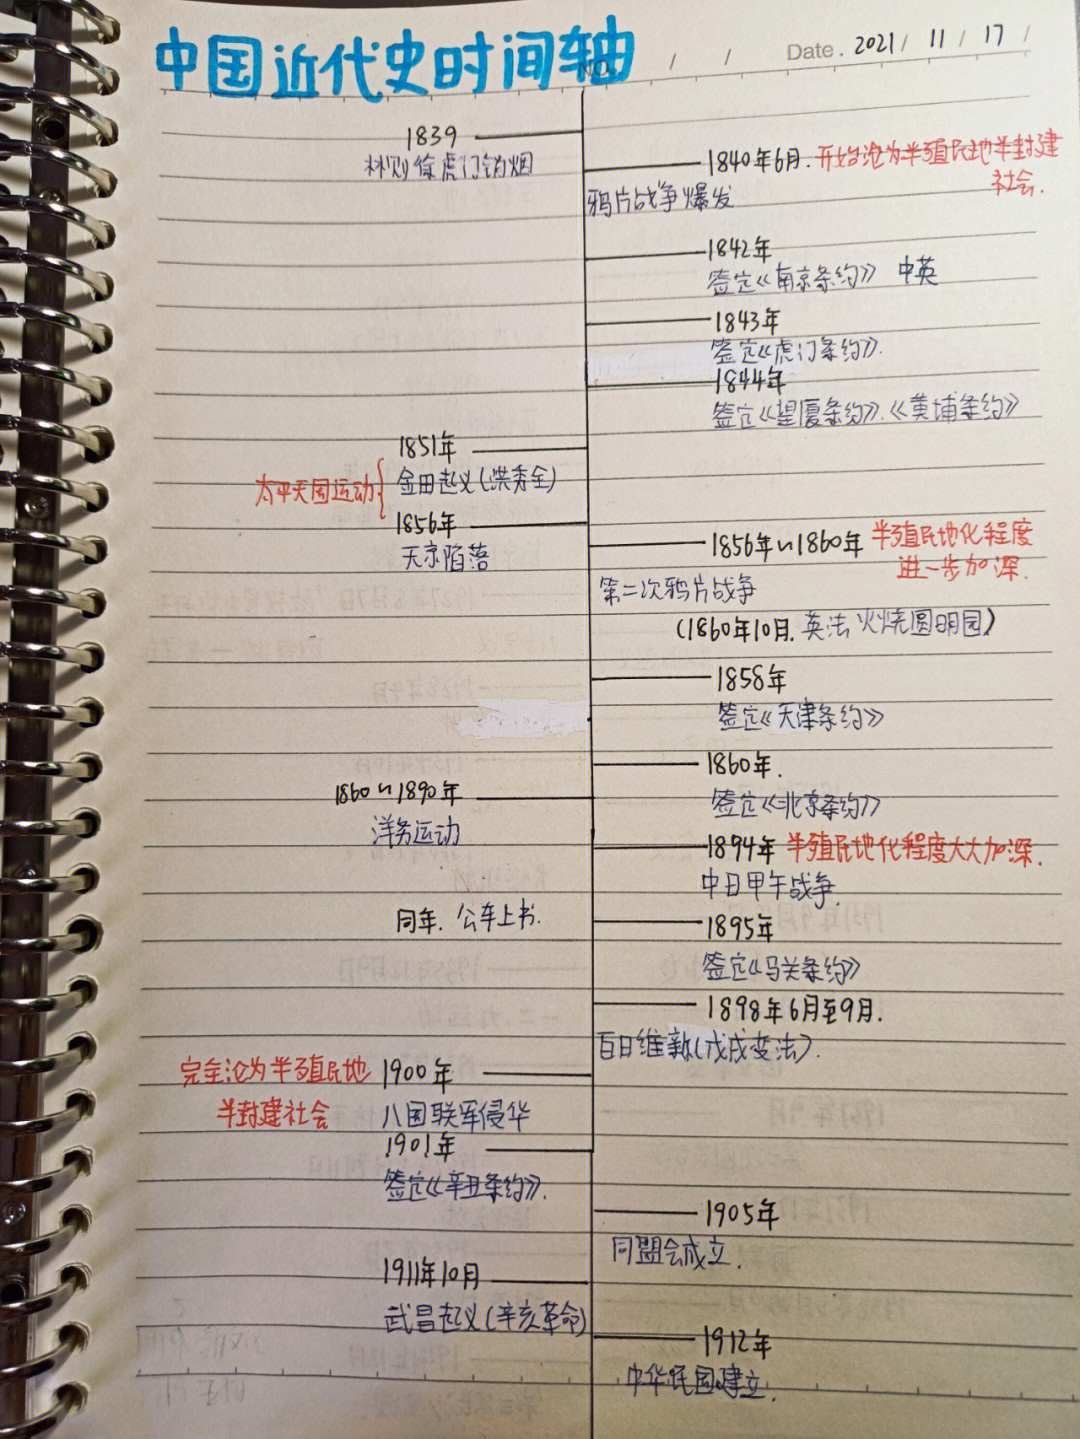 中国近代史时间轴
NO.
/ / Date. 2021 / 11 / 17 /
1839
林则徐虎门销烟
1840年6月. 开始沦为半殖民地半封建
社会.
鸦片战争爆发
1842年
签定《南京条约》 中英
1843年
签定《虎门条约》.
1844年
签定《望厦条约》.《黄埔条约》
1851年
太平天国运动{ 金田起义(洪秀全)
1856年
天京陷落
1856年~1860年 半殖民地化程度
进一步加深.
第二次鸦片战争
(1860年10月. 英法火烧圆明园)
1858年
签定《天津条约》
1860年.
签定《北京条约》
1860~1890年
洋务运动
1894年 半殖民地化程度大大加深.
中日甲午战争.
同年. 公车上书.
1895年
签定《马关条约》
1898年6月至9月.
百日维新(戊戌变法).
完全沦为半殖民地 1900年
半封建社会 八国联军侵华
1901年
签定《辛丑条约》.
1905年
同盟会成立.
1911年10月
武昌起义(辛亥革命)
1912年
中华民国建立.